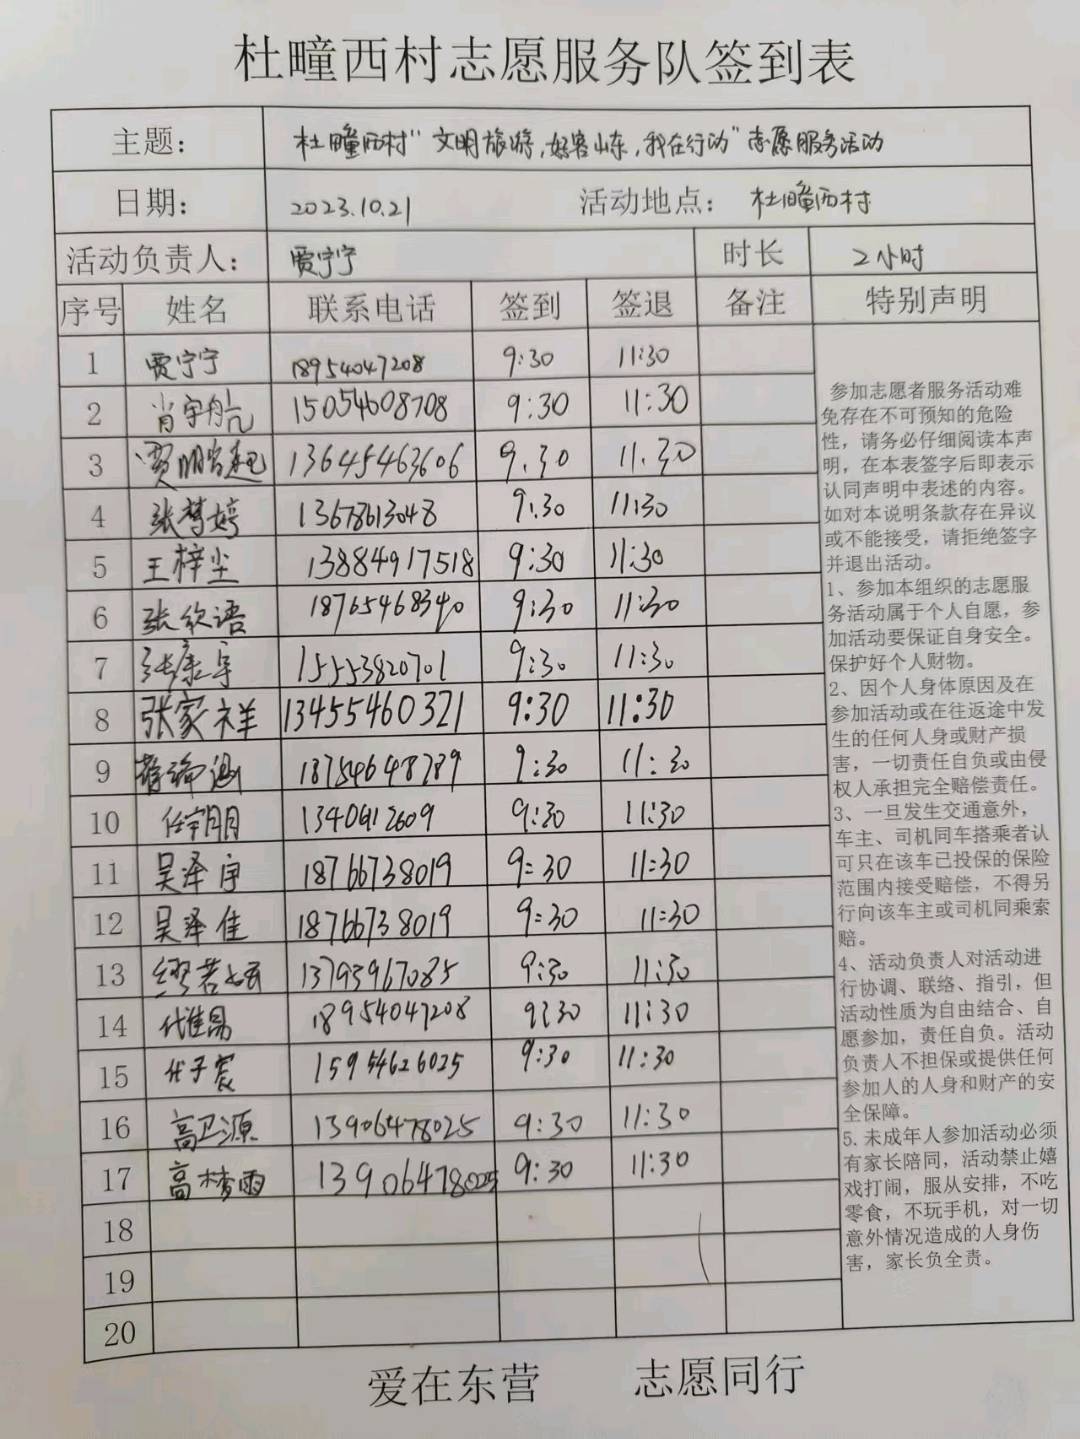 杜疃西村志愿服务队签到表
主题： 杜疃西村“文明旅游,好客山东,我在行动”志愿服务活动
日期： 2023.10.21 活动地点： 杜疃西村
活动负责人： 贾宁宁 时长 2小时
序号 姓名 联系电话 签到 签退 备注 特别声明
1 贾宁宁 18954047208 9:30 11:30
2 肖宇航 15054608708 9:30 11:30
3 贾明 13645463606 9.30 11.30
4 张梦婷 13678613048 9:30 11:30
5 王梓尘 13884917518 9:30 11:30
6 张欣语 18765468340 9:30 11:30
7 张康宇 15553820701 9:30 11:30
8 张家祥 13455460321 9:30 11:30
9 18754648789 9:30 11:30
10 任 1340912609 9:30 11:30
11 吴泽宇 18766738019 9:30 11:30
12 吴泽佳 18766738019 9:30 11:30
13 缪若 13793967085 9:30 11:30
14 代 18954047208 9:30 11:30
15 代子宸 15954626025 9:30 11:30
16 高卫源 13906478025 9:30 11:30
17 高梦雨 13906478025 9:30 11:30
18
19
20
参加志愿者服务活动难
免存在不可预知的危险
性，请务必仔细阅读本声
明，在本表签字后即表示
认同声明中表述的内容。
如对本说明条款存在异议
或不能接受，请拒绝签字
并退出活动。
1、参加本组织的志愿服
务活动属于个人自愿，参
加活动要保证自身安全。
保护好个人财物。
2、因个人身体原因及在
参加活动或在往返途中发
生的任何人身或财产损
害，一切责任自负或由侵
权人承担完全赔偿责任。
3、一旦发生交通意外，
车主、司机同车搭乘者认
可只在该车已投保的保险
范围内接受赔偿，不得另
行向该车主或司机同乘索
赔。
4、活动负责人对活动进
行协调、联络、指引，但
活动性质为自由结合、自
愿参加，责任自负。活动
负责人不担保或提供任何
参加人的人身和财产的安
全保障。
5.未成年人参加活动必须
有家长陪同，活动禁止嬉
戏打闹，服从安排，不吃
零食，不玩手机，对一切
意外情况造成的人身伤
害，家长负全责。
爱在东营 志愿同行